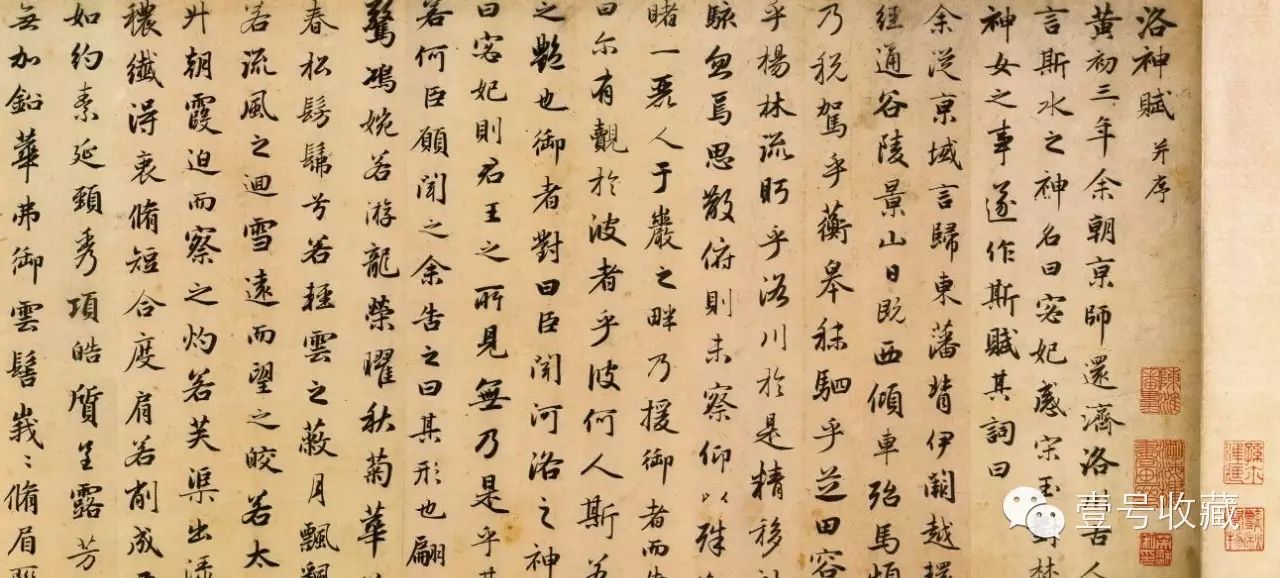 洛神賦 并序
黄初三年余朝京師還濟洛古人
言斯水之神名曰宓妃感宋玉對楚
神女之事遂作斯賦其詞曰
余從京域言歸東藩背伊闕越轘
經通谷陵景山日既西傾車殆馬煩
乃稅駕乎蘅皋秣駟乎芝田容
乎楊林流眄乎洛川於是精移神
駭忽焉思散俯則未察仰以殊
睹一麗人于巖之畔乃援御者而告
曰尓有覿於波者乎彼何人斯若
之艷也御者對曰臣聞河洛之神
曰宓妃則君王之所見無乃是乎其
若何臣願聞之余告之曰其形也翩
驚鴻婉若游龍榮曜秋菊華
春松髣髴兮若輕雲之蔽月飄飄
若流風之迴雪遠而望之皎若太
升朝霞迫而察之灼若芙渠出渌
穠纖得衷脩短合度肩若削成
如約素延頸秀項皓質呈露芳
無加鉛華弗御雲髻峩〻脩眉聯
壹号收藏